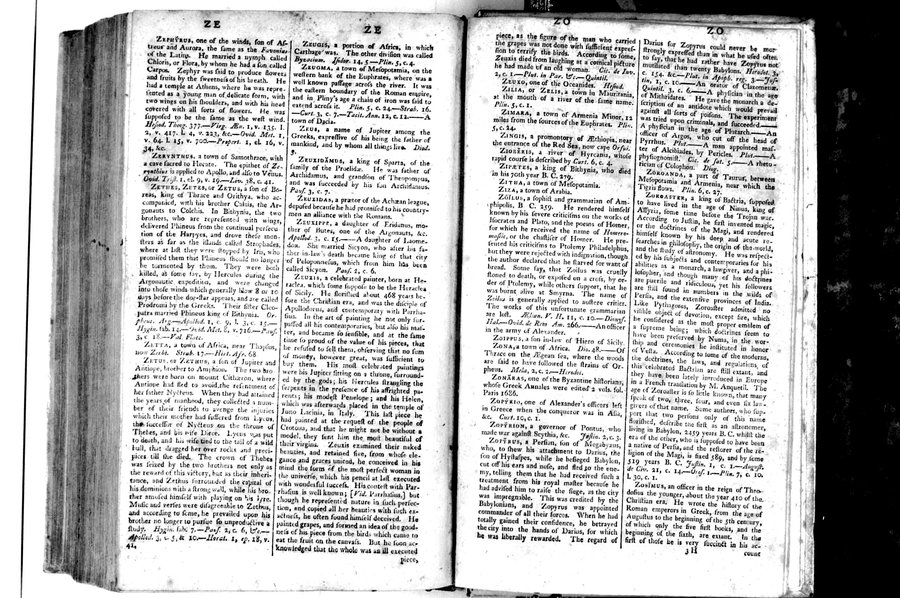 ZE
ZEPHYRUS, one of the winds, son of As-
treus and Aurora, the same as the Favonius
of the Latins. He married a nymph called
Chloris, or Flora, by whom he had a son called
Carpos. Zephyr was said to produce flowers
and fruits by the sweetness of his breath. He
had a temple at Athens, where he was repre-
sented as a young man of delicate form, with
two wings on his shoulders, and with his head
covered with all sorts of flowers. He was
supposed to be the same as the west wind.
Hesiod. Theog. 377.—Virg. Æn. 1, v. 135. l.
2, v. 417. l. 4, v. 223, &c.—Ovid. Met. 1,
v. 64. l. 15, v. 700.—Propert. 1, el. 16, v.
34, &c.
ZERYNTHUS, a town of Samothrace, with
a cave sacred to Hecate. The epithet of Ze-
rynthius is applied to Apollo, and also to Venus.
Ovid. Trist. 1, el. 9, v. 19.—Liv. 38, c. 41.
ZETHES, ZETES, or ZETUS, a son of Bo-
reas, king of Thrace and Orithya, who ac-
companied, with his brother Calais, the Ar-
gonauts to Colchis. In Bithynia, the two
brothers, who are represented with wings,
delivered Phineus from the continual persecu-
tion of the Harpyes, and drove these mon-
sters as far as the islands called Strophades,
where at last they were stopped by Iris, who
promised them that Phineus should no longer
be tormented by them. They were both
killed, as some say, by Hercules during the
Argonautic expedition, and were changed
into those winds which generally blow 8 or 10
days before the dog-star appears, and are called
Prodromi by the Greeks. Their sister Cleo-
patra married Phineus king of Bithynia. Or-
pheus. Arg.—Apollod. 1, c. 9, l. 3, c. 15.—
Hygin. fab. 14.—Ovid. Met. 8, v. 716.—Paus.
3, c. 18.—Val. Flacc.
ZETTA, a town of Africa, near Thapsus,
now Zerbi. Strab. 17.—Hirt. Afr. 68
ZETUS, or ZETHUS, a son of Jupiter and
Antiope, brother to Amphion. The two bro-
thers were born on mount Cithæron, where
Antiope had fled to avoid the resentment of
her father Nycteus. When they had attained
the years of manhood, they collected a num-
ber of their friends to avenge the injuries
which their mother had suffered from Lycus
the successor of Nycteus on the throne of
Thebes, and his wife Dirce. Lycus was put
to death, and his wife tied to the tail of a wild
bull, that dragged her over rocks and preci-
pices till she died. The crown of Thebes
was seized by the two brothers not only as
the reward of this victory, but as their inheri-
tance, and Zethus surrounded the capital of
his dominions with a strong wall, while his bro-
ther amused himself with playing on his lyre.
Music and verses were disagreeable to Zethus,
and according to some, he prevailed upon his
brother no longer to pursue so unproductive a
study. Hygin. fab. 7.—Paus. 2, c. 6, &c.—
Apollod. 3, c. 5, & 10.—Horat. 1, ep. 18, v.
42.
ZE
ZEUGIS, a portion of Africa, in which
Carthage was. The other division was called
Byzacium. Isidor. 14, 5—Plin. 5, c. 4.
ZEUGMA, a town of Mesopotamia, on the
western bank of the Euphrates, where was a
well known passage across the river. It was
the eastern boundary of the Roman empire,
and in Pliny's age a chain of iron was said to
extend across it. Plin. 5, c. 24.—Strab. 16.
—Curt. 3, c. 7.—Tacit. Ann. 12, c. 12.—A
town of Dacia.
ZEUS, a name of Jupiter among the
Greeks, expressive of his being the father of
mankind, and by whom all things live. Diod.
5.
ZEUXIDAMUS, a king of Sparta, of the
family of the Proclidæ. He was father of
Archidamus, and grandson of Theopompus,
and was succeeded by his son Archidamus.
Paus. 3, c. 7.
ZEUXIDAS, a prætor of the Achæan league,
deposed because he had promised to his country-
men an alliance with the Romans.
ZEUXIPPE, a daughter of Eridanus, mo-
ther of Butes, one of the Argonauts, &c.
Apollod. 3, c. 15.—A daughter of Laome-
don. She married Sicyon, who after his fa-
ther in-law's death became king of that city
of Peloponnesus, which from him has been
called Sicyon. Paus. 2, c. 6.
ZEUXIS, a celebrated painter, born at He-
raclea, which some suppose to be the Heraclea
of Sicily. He flourished about 468 years be-
fore the Christian era, and was the disciple of
Apollodorus, and contemporary with Parrha-
sius. In the art of painting he not only sur-
passed all his contemporaries, but also his mas-
ter, and became so sensible, and at the same
time so proud of the value of his pieces, that
he refused to sell them, observing that no sum
of money, however great, was sufficient to
buy them. His most celebrated paintings
were his Jupiter sitting on a throne, surround-
ed by the gods; his Hercules strangling the
serpents in the presence of his affrighted pa-
rents; his modest Penelope; and his Helen,
which was afterwards placed in the temple of
Juno Lacinia, in Italy. This last piece he
had painted at the request of the people of
Crotona, and that he might not be without a
model, they sent him the most beautiful of
their virgins. Zeuxis examined their naked
beauties, and retained five, from whose ele-
gance and graces united, he conceived in his
mind the form of the most perfect woman in
the universe, which his pencil at last executed
with wonderful success. His contest with Par-
rhasius is well known; [Vid. Parrhasius,] but
though he represented nature in such perfec-
tion, and copied all her beauties with such ex-
actness, he often found himself deceived. He
painted grapes, and formed an idea of the good-
ness of his piece from the birds which came to
eat the fruit on the canvass. But he soon ac-
knowledged that the whole was an ill executed
piece,
ZO
piece, as the figure of the man who carried
the grapes was not done with sufficient expres-
sion to terrify the birds. According to some,
Zeuxis died from laughing at a comical picture
he had made of an old woman. Cic. de Inv.
2, c. 1.—Plut. in Par. &c.—Quintil.
ZEUXO, one of the Oceanides. Hesiod.
ZILIA, or ZELIS, a town in Mauritania,
at the mouth of a river of the same name.
Plin. 5, c. 1.
ZIMARA, a town of Armenia Minor, 12
miles from the sources of the Euphrates. Plin.
5, c. 24.
ZINGIS, a promontory of Æthiopia, near
the entrance of the Red Sea, now cape Orfui.
ZIOBERIS, a river of Hyrcania, whose
rapid course is described by Curt. 6, c. 4.
ZIPÆTES, a king of Bithynia, who died
in his 70th year B. C. 279.
ZITHA, a town of Mesopotamia.
ZIZA, a town of Arabia.
ZOILUS, a sophist and grammarian of Am-
phipolis, B. C. 259. He rendered himself
known by his severe criticisms on the works of
Isocrates and Plato, and the poems of Homer,
for which he received the name of Homero-
mastix, or the chastiser of Homer. He pre-
sented his criticisms to Ptolemy Philadelphus,
but they were rejected with indignation, though
the author declared that he starved for want of
bread. Some say, that Zoilus was cruelly
stoned to death, or exposed on a cross, by or-
der of Ptolemy, while others support, that he
was burnt alive at Smyrna. The name of
Zoilus is generally applied to austere critics.
The works of this unfortunate grammarian
are lost. Ælian. V. H. 11, c. 10.—Dionys.
Hal.—Ovid. de Rem Am. 266.—An officer
in the army of Alexander.
ZOIPPUS, a son in-law of Hiero of Sicily.
ZONA, a town of Africa. Dio. 48.—Of
Thrace on the Ægean sea, where the woods
are said to have followed the strains of Or-
pheus. Mela, 2, c. 2.—Herodot.
ZONARAS, one of the Byzantine historians,
whose Greek Annales were edited 2 vols. fol.
Paris 1686.
ZOPYRIO, one of Alexander's officers left
in Greece when the conqueror was in Asia,
&c. Curt. 10, c. 1.
ZOPYRION, a governor of Pontus, who
made war against Scythia, &c. Justin. 2, c. 3.
ZOPYRUS, a Persian, son of Megabyzus,
who, to shew his attachment to Darius, the
son of Hystaspes, while he besieged Babylon,
cut off his ears and nose, and fled to the ene-
my, telling them that he had received such a
treatment from his royal master because he
had advised him to raise the siege, as the city
was impregnable. This was credited by the
Babylonians, and Zopyrus was appointed
commander of all their forces. When he had
totally gained their confidence, he betrayed
the city into the hands of Darius, for which
he was liberally rewarded. The regard of
ZO
Darius for Zopyrus could never be more
strongly expressed than in what he used often
to say, that he had rather have Zopyrus not
mutilated than twenty Babylons. Herodot. 3,
c. 154, &c.—Plut. in Apoph. reg. 3.—Jus-
tin. 1, c. 10.—An orator of Clazomenæ.
Quintil. 3, c. 6.—A physician in the age
of Mithridates. He gave the monarch a de-
scription of an antidote which would prevail
against all sorts of poisons. The experiment
was tried upon criminals, and succeeded.—
A physician in the age of Plutarch.—An
officer of Argos, who cut off the head of
Pyrrhus. Plut.—A man appointed mas-
ter of Alcibiades, by Pericles. Plut.—A
physiognomist. Cic. de fat. 5.—A rheto-
rician of Colophon. Diog.
ZOROANDA, a part of Taurus, between
Mesopotamia and Armenia, near which the
Tigris flows. Plin. 6, c. 27.
ZOROASTER, a king of Bactria, supposed
to have lived in the age of Ninus, king of
Assyria, some time before the Trojan war.
According to Justin, he first invented magic,
or the doctrines of the Magi, and rendered
himself known by his deep and acute re-
searches in philosophy, the origin of the world,
and the study of astronomy. He was respect-
ed by his subjects and contemporaries for his
abilities as a monarch, a lawgiver, and a phi-
losopher, and though many of his doctrines
are puerile and ridiculous, yet his followers
are still found in numbers in the wilds of
Persia, and the extensive provinces of India.
Like Pythagoras, Zoroaster admitted no
visible object of devotion, except fire, which
he considered as the most proper emblem of
a supreme being; which doctrines seem to
have been preserved by Numa, in the wor-
ship and ceremonies he instituted in honor
of Vesta. According to some of the moderns,
the doctrines, the laws, and regulations, of
this celebrated Bactrian are still extant, and
they have been lately introduced in Europe
in a French translation by M. Anquetil. The
age of Zoroaster is so little known, that many
speak of two, three, four, and even six law-
givers of that name. Some authors, who sup-
port that two persons only of this name
flourished, describe the first as an astronomer,
living in Babylon, 2459 years B. C. whilst the
era of the other, who is supposed to have been
a native of Persia, and the restorer of the re-
ligion of the Magi, is fixed 589, and by some
519 years B. C. Justin. 1, c. 1.—August.
de Civ. 21, c. 14.—Oros. 1.—Plin. 7, c. 10.
l. 30, c. 1.
ZOSIMUS, an officer in the reign of Theo-
dosius the younger, about the year 410 of the
Christian era. He wrote the history of the
Roman emperors in Greek, from the age of
Augustus to the beginning of the 5th century,
of which only the five first books, and the
beginning of the sixth, are extant. In the
first of these he is very succinct in his ac-
3 H
count